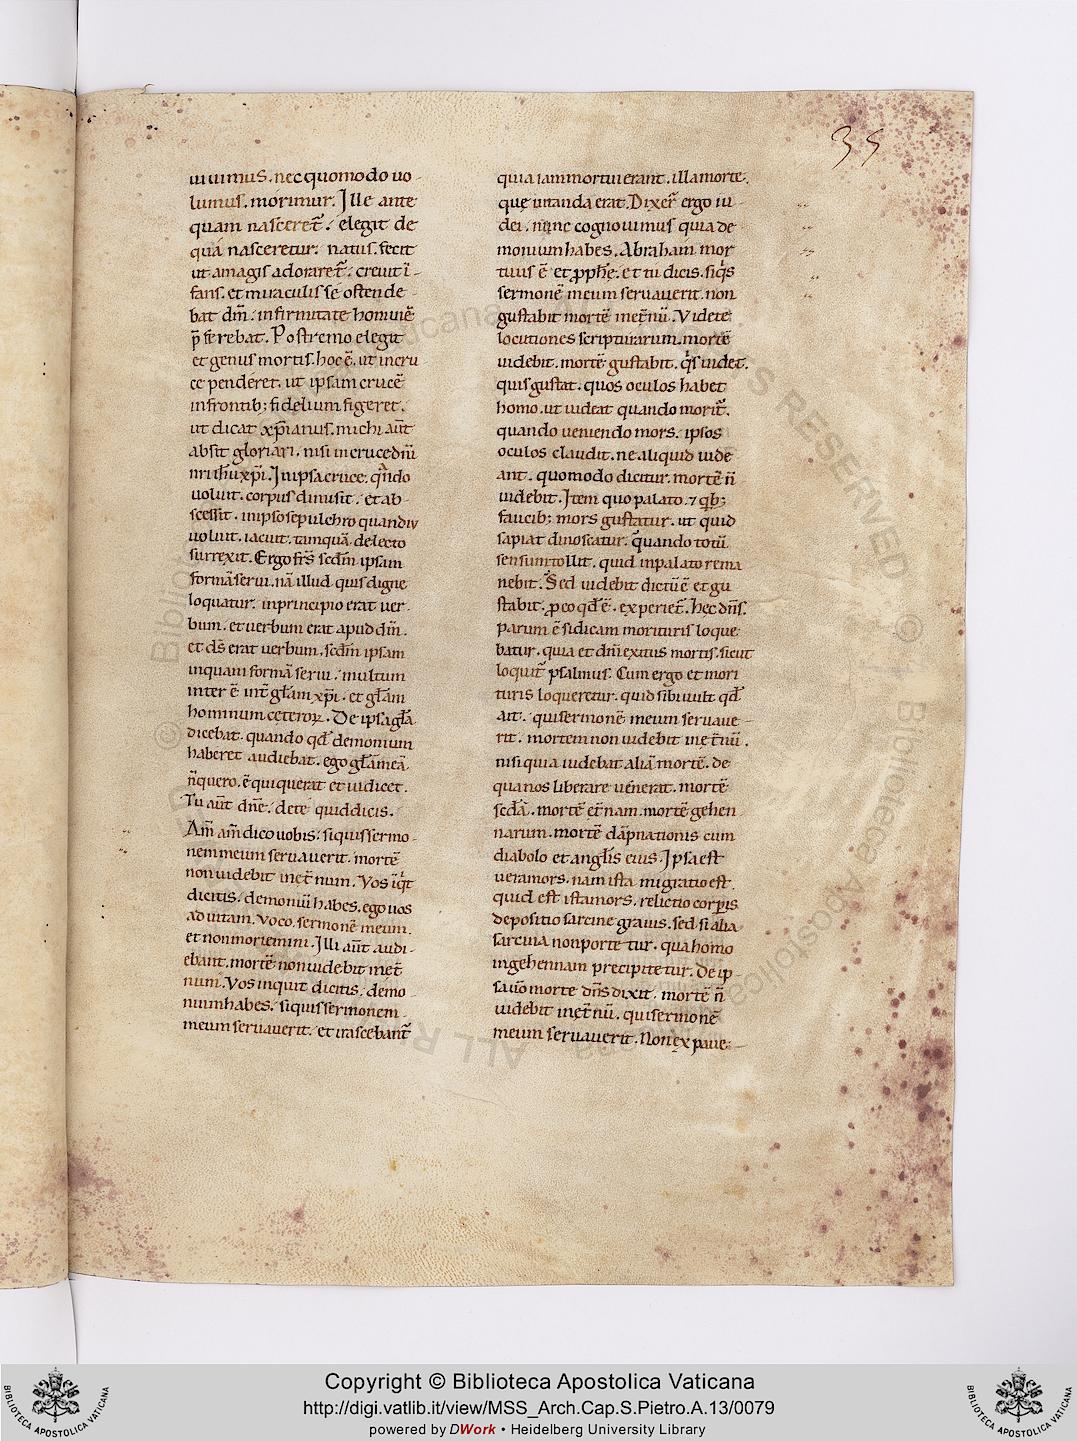 35
uiuimus. nec quomodo uo-
lumus. morimur. Ille ante
quam nasceret̃. elegit de
qua nasceretur. natus. fecit
ut a magis adoraret̃. creuit ī-
fans. et miraculis se ostende-
bat dm̄. infirmitate hominē
p̄ferebat. Postremo elegit
et genus mortis. hoc ē. ut in cru
ce penderet. ut ipsam crucē
in frontib; fidelium figeret.
ut dicat xp̄ianus. michi aūt
absit gloriari. nisi in cruce dn̄i
nr̄i ih̄u xp̄i. In ipsa cruce. qn̄do
uoluit. corpus dimisit. et ab-
scessit. in ipso sepulchro quandiu
uoluit. iacuit. tanquā de lecto
surrexit. Ergo fr̄s scdm̄ ipsam
formā serui. nā illud quis digne
loquatur. in principio erat uer-
bum. et uerbum erat apud dm̄.
et ds̄ erat uerbum. scdm̄ ipsam
inquam formā serui. multum
inter ē int̃ gl̄am xp̄i. et gl̄am
hominum ceteroꝝ. De ipsa gl̄a
dicebat. quando qd̄ demonium
haberet audiebat. ego gl̄am meā
n̄ quero. ē qui querat et iudicet.
Tu aūt dn̄e. de te quid dicis.
Am̄ am̄ dico uobis. siquis sermo-
nem meum seruauerit. mortē
non uidebit in et̃num. Vos iq̇t
dicitis. demoniū habes. ego uos
ad uitam. uoco. sermonē meum.
et non moriemini. Illi aūt audi-
ebant. mortē non uidebit in et̃
num. Vos inquit dicitis. demo-
nium habes. siquis sermonem
meum seruauerit. et irascebant̃
quia iam mortui erant. illa morte.
quę uitanda erat. Dixer̄ ergo iu-
dei. nunc cognouimus quia de
monium habes. Abraham mor
tuus ē et pph̄ę. et tu dicis. siq̇s
sermonē meum seruauerit. non
gustabit mortē in et̃nū. Videte
locutiones scripturarum. mortē
uidebit. mortē gustabit. q̇s uidet.
quis gustat. quos oculos habet
homo. ut uideat quando morit̃.
quando ueniendo mors. ipsos
oculos claudit. ne aliquid uide
ant. quomodo dicitur. mortē n̄
uidebit. Item quo palato. ⁊ qb;
faucib; mors gustatur. ut quid
sapiat dinoscatur. quando totū
sensum tollit. quid in palato rema
nebit. Sed uidebit dictū ē et gu
stabit. p eo qd̄ ē. experiet̃. Hęc dn̄s.
Parum ē si dicam morituris loque
batur. quia et dn̄i exitus mortis. sicut
loquit̃ psalmus. Cum ergo et mori
turis loqueretur. quid sibi uult qd̄
ait. qui sermonē meum seruaue-
rit. mortem non uidebit in et̃nū.
nisi quia uidebat aliā mortē. de
qua nos liberare uenerat. mortē
scdā. mortē et̃nam. mortē gehen
narum. mortē dāpnationis cum
diabolo et angl̄is eius. Ipsa est
uera mors. nam ista migratio est.
quid est ista mors. relictio corpis
depositio sarcine grauis. sed si alia
sarcina non portetur. qua homo
in gehennam precipitetur. De ip-
sa ūo morte dn̄s dixit. mortē n̄
uidebit in et̃nū. qui sermonē
meum seruauerit. Non expaue-
Copyright © Biblioteca Apostolica Vaticana
http://digi.vatlib.it/view/MSS_Arch.Cap.S.Pietro.A.13/0079
powered by DWork • Heidelberg University Library